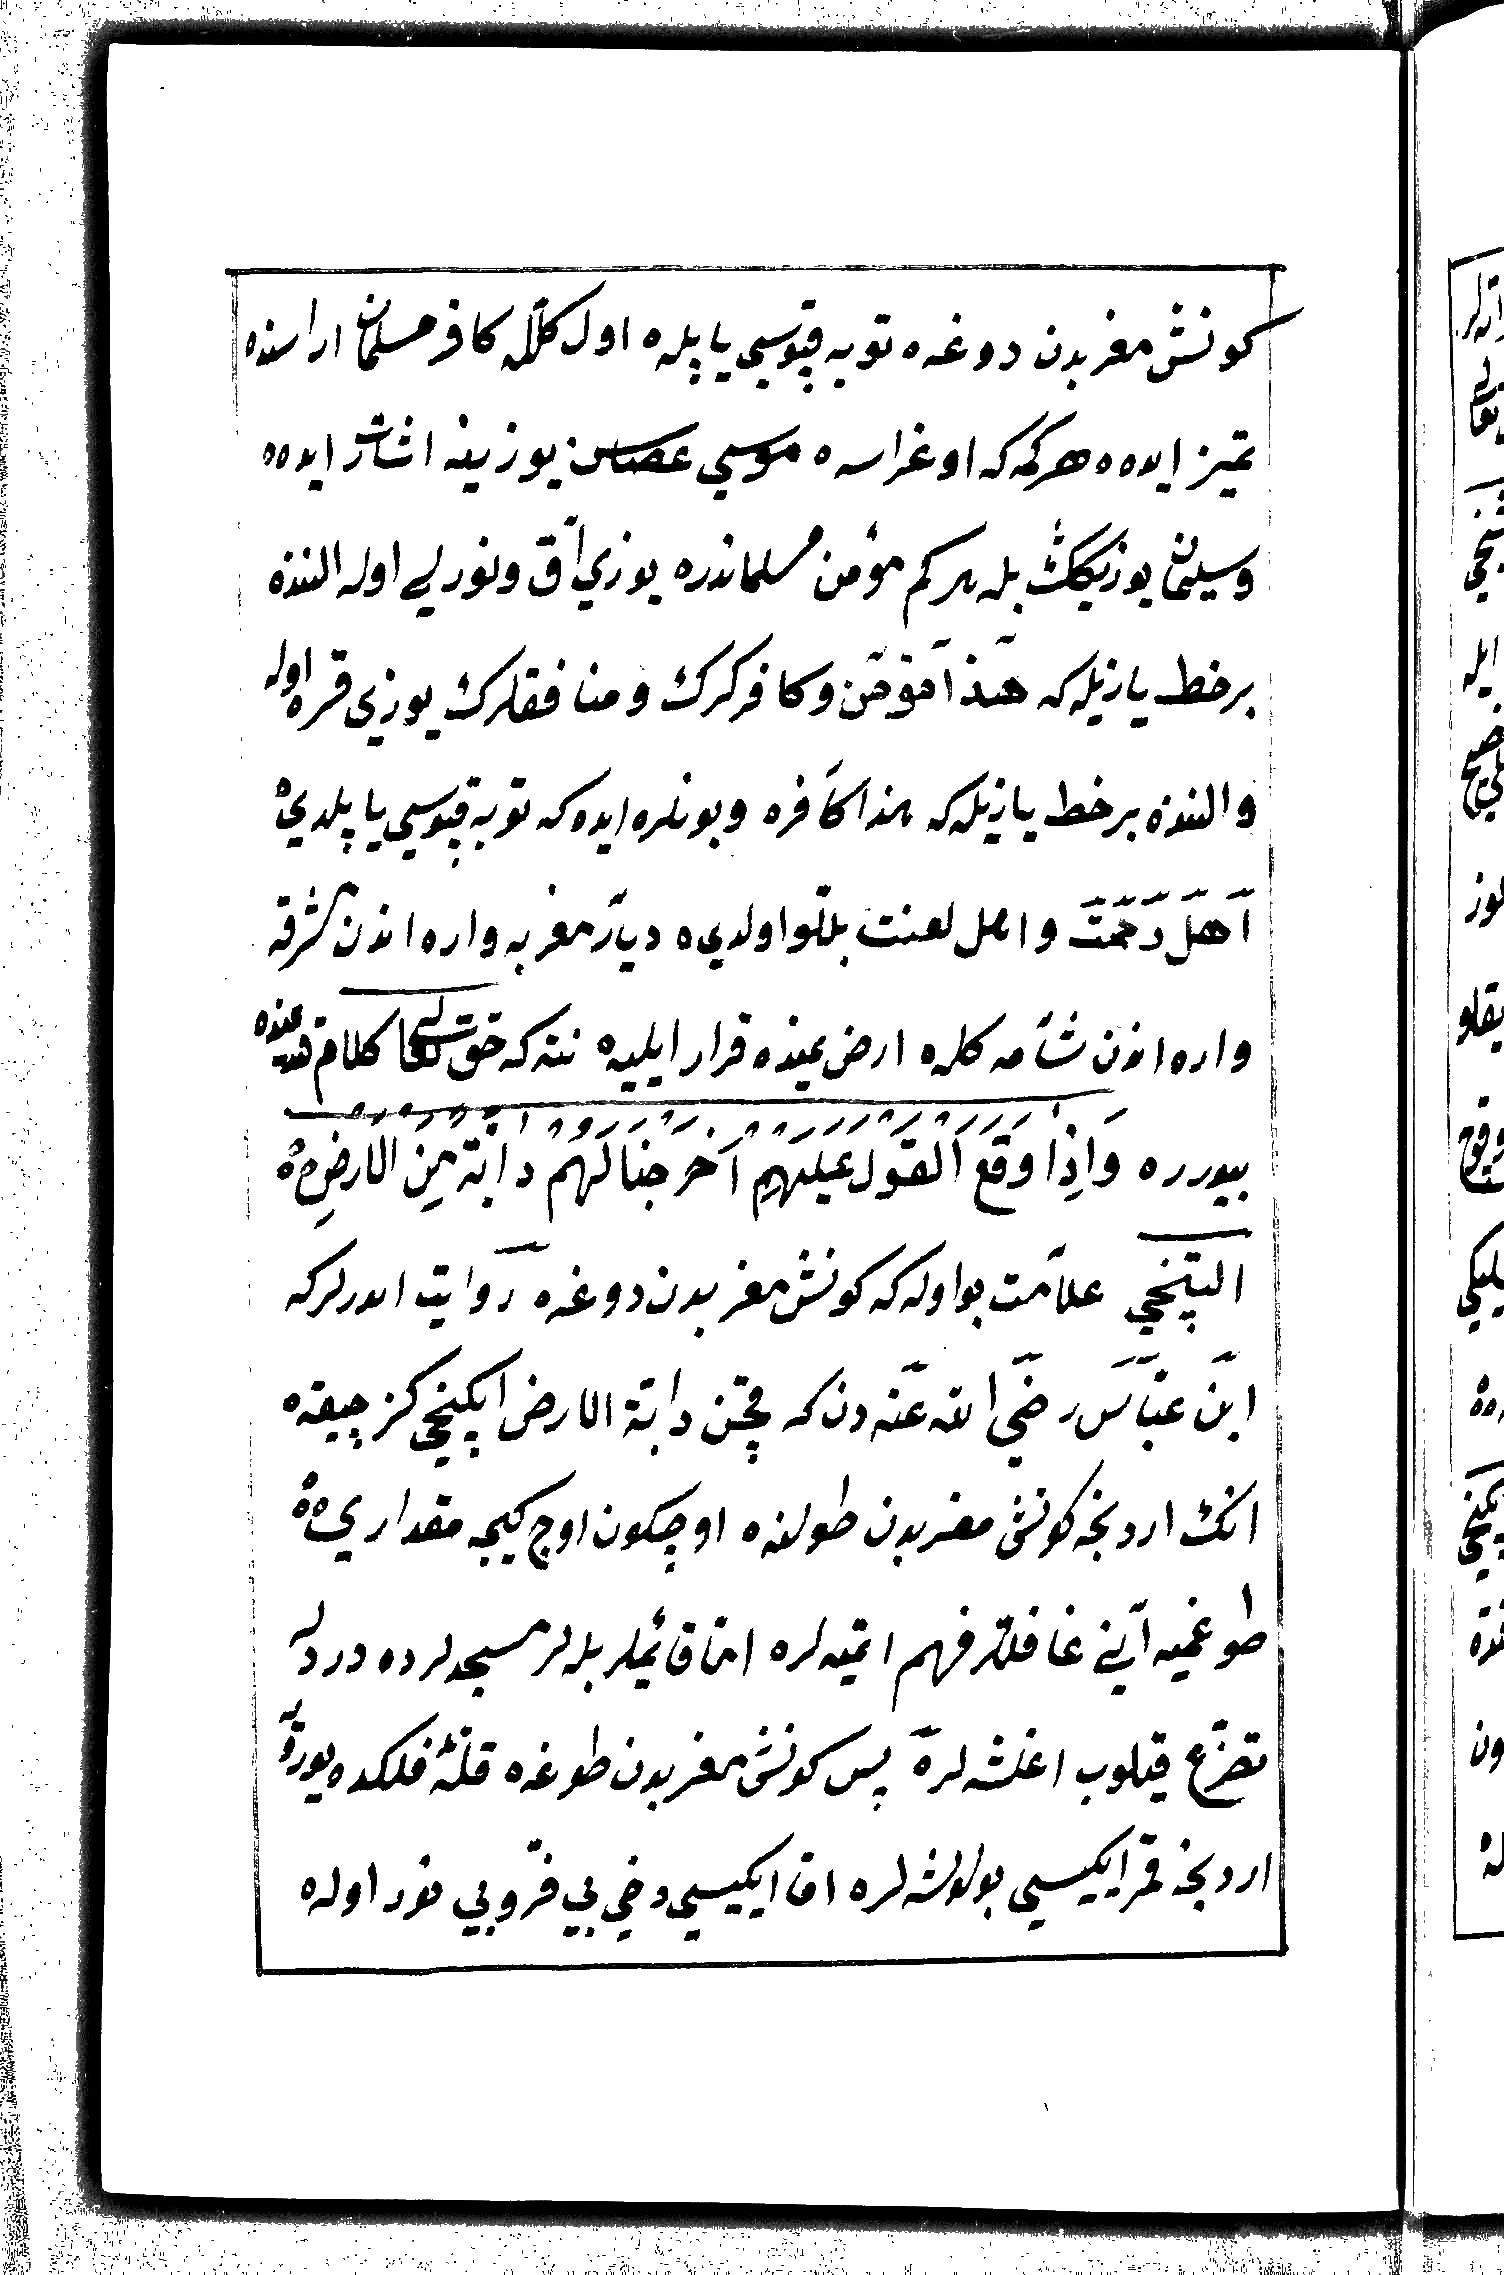 كونش مغربدن دوغه توبه قپوسي ياپله اول كللّه كافر مسلمان اراسنده
تميز ايده هركمه كه اوغراسه موسي عصاسن يوزينه اشارت ايده
وسليمان يوزيكك بله هركم مؤمن مسلماندر يوزي آق ونورلي اوله النده
بر خط يازيله كه هذا مؤمن وكافرلرك ومنافقلرك يوزي قره اوله
والنده بر خط يازيله كه هذا كافره وبونلره ايده كه توبه قپوسي ياپلدي
اهل رحمت واهل لعنت بللو اولدي ديار مغربه واره اندن مشرقه
واره اندن شامه كله ارض يمنده قرار ايليه نته كه حق تعالي كلام قديمنده
بيوررو وَاِذا وقع القول عليهم اخرجنا لهم دابّة مِن الارضِ
التنجي علامت بو اوله كه كونش مغربدن دوغه روايت ايدرلر كه
ابن عبّاس رضي الله عنه دن كه قچن دابّة الارض ايكنجي كز چيقه
انك اردنجه كونش مغربدن طولنه اوچكون اوچ كيجه مقداري
طوغميه آني غافللر فهم اتميه لره امّا قائملر بله لر مسجدلرده دردله
تضرّع قيلوب اغلشه لره پس كونش مغربدن طوغه قلّهٔ فلكده يورر
اردنجه قمر ايكيسي بولوشه لره امّا ايكيسي دخي بي فرّ وبي نور اوله